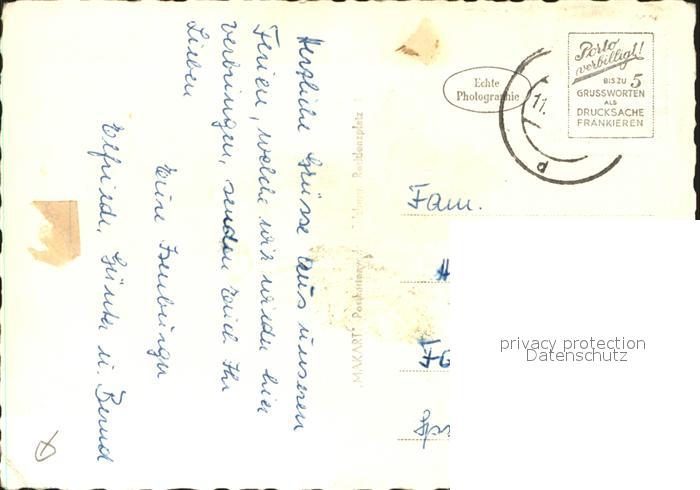 Herzliche Grüsse aus unseren
Ferien, welche wir wieder hier
verbringen, senden Euch Ihr
Lieben
Eure Isenburger
Elfriede, Günter u. Bernd
Echte
Photographie
Porto
verbilligt!
BIS ZU 5
GRUSSWORTEN
ALS
DRUCKSACHE
FRANKIEREN
11.
Fam.
privacy protection
Datenschutz